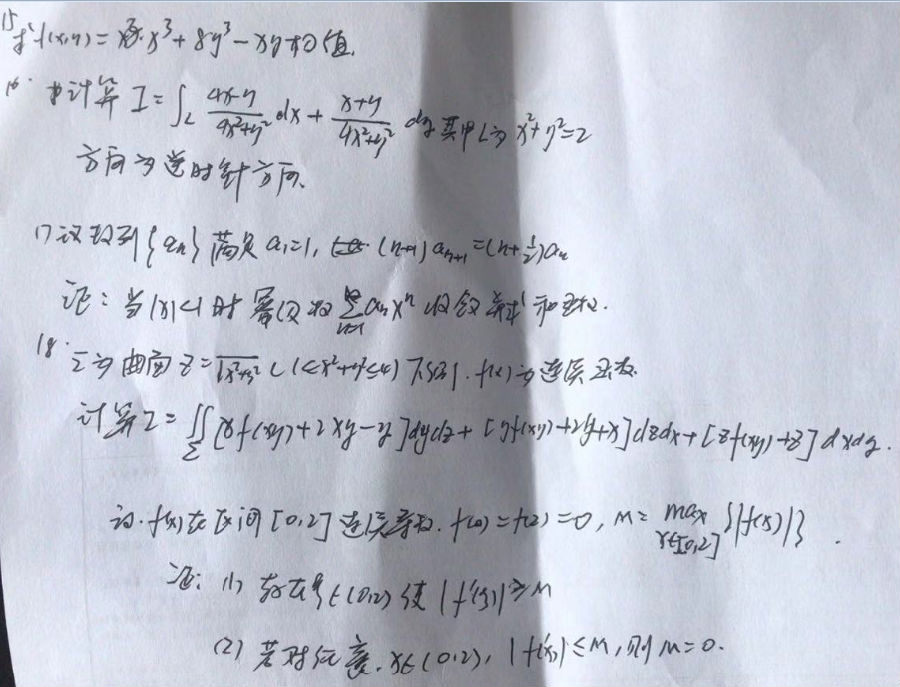 15 求f(x,y)=x³+8y³-xy极值.
16. 计算I=∫_L (4x-y)/(4x²+y²) dx + (x+y)/(4x²+y²) dy 其中L为x²+y²=2
方向为逆时针方向.
17 设数列{aₙ}满足a₁=1, (n+1)aₙ₊₁=(n+½)aₙ
证:当|x|<1时幂级数∑_{n=1}^∞ aₙxⁿ收敛并求和函数.
18. Σ为曲面Z=√(x²+y²) (1≤x²+y²≤4)下侧.f(x)为连续函数.
计算I=∬_Σ [xf(xy)+2xy-y]dydz+[yf(xy)+2y+x]dzdx+[zf(xy)+z]dxdy.
设.f(x)在区间[0,2]连续导数.f(0)=f(2)=0, M=max_{x∈[0,2]}{|f(x)|}.
证:(1) 存在ξ∈(0,2)使|f'(ξ)|≥M
(2) 若对任意.x∈(0,2),|f'(x)|≤M,则M=0.